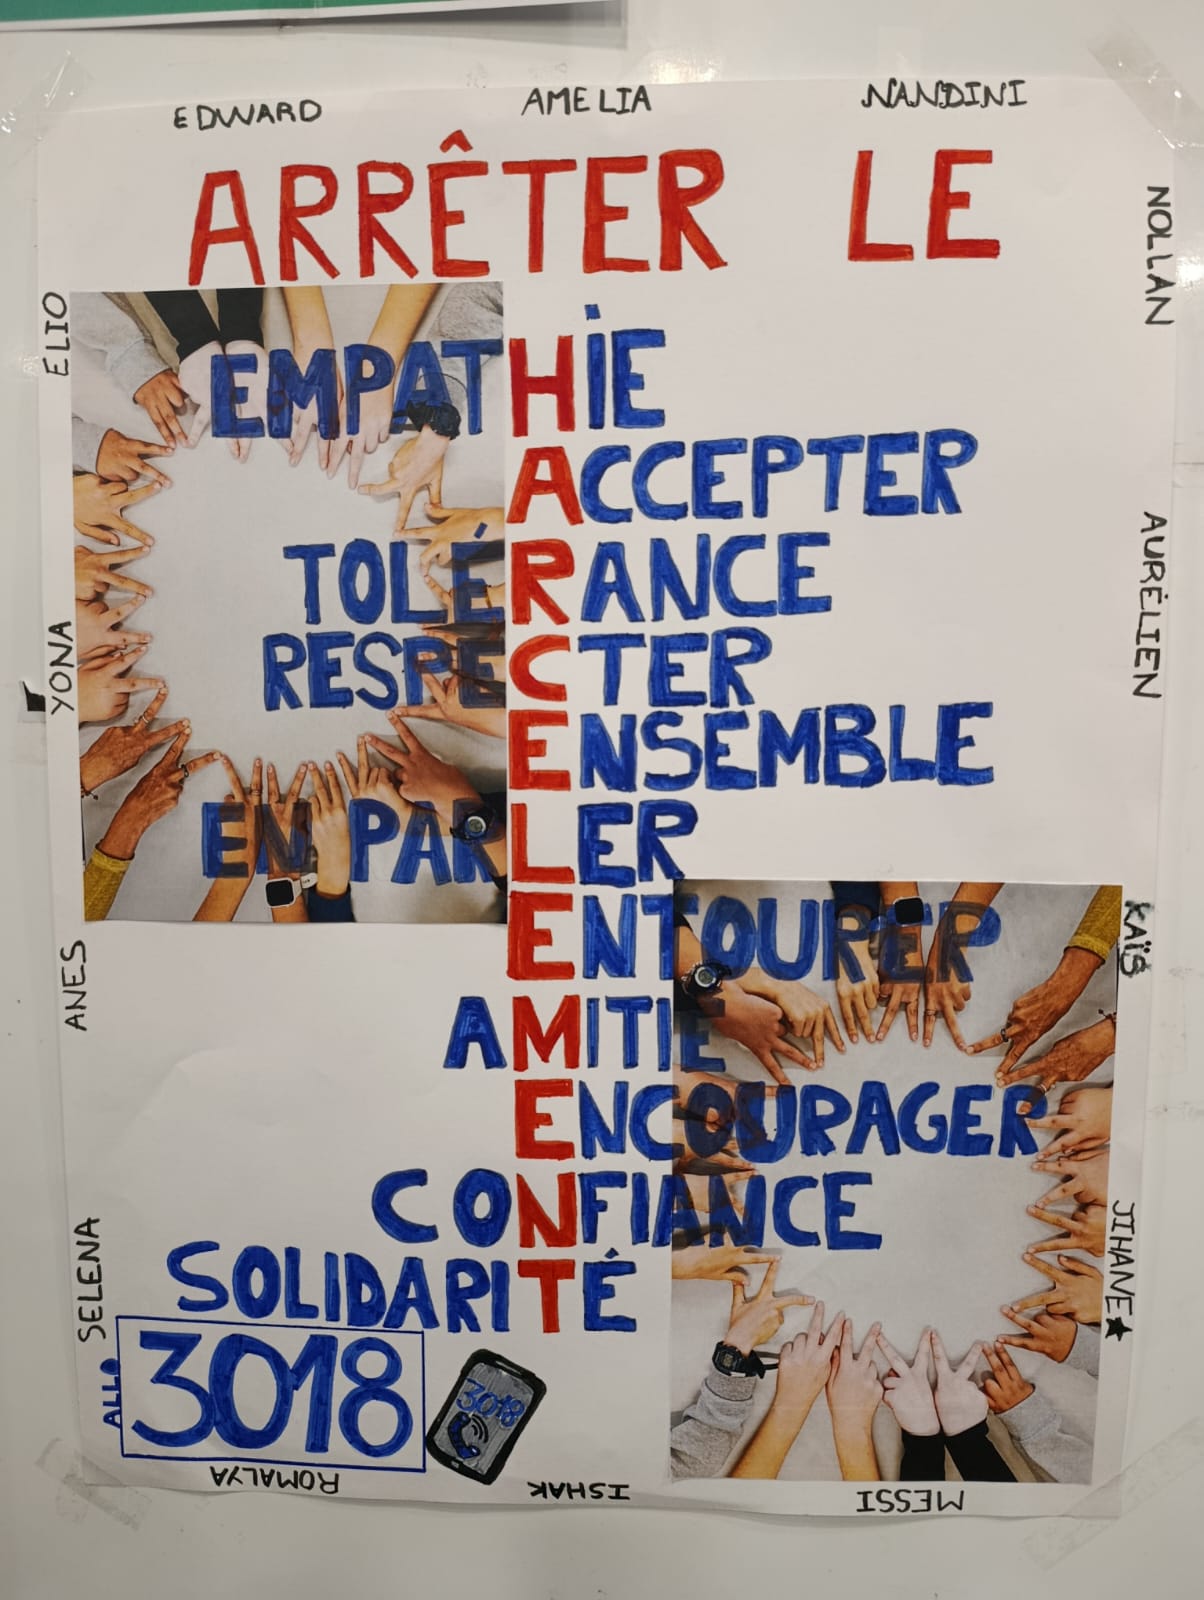 EDWARD AMELIA NANDINI
ARRÊTER LE
EMPATHIE
ACCEPTER
TOLÉRANCE
RESPECTER
ENSEMBLE
EN PARLER
ENTOURER
AMITIÉ
ENCOURAGER
CONFIANCE
SOLIDARITÉ
ALLO 3018
3018
ELIO
YONA
ANES
SELENA
NOLLAN
AURÉLIEN
KAÏS
JIHANE★
ROMALYA ISHAK MESSI